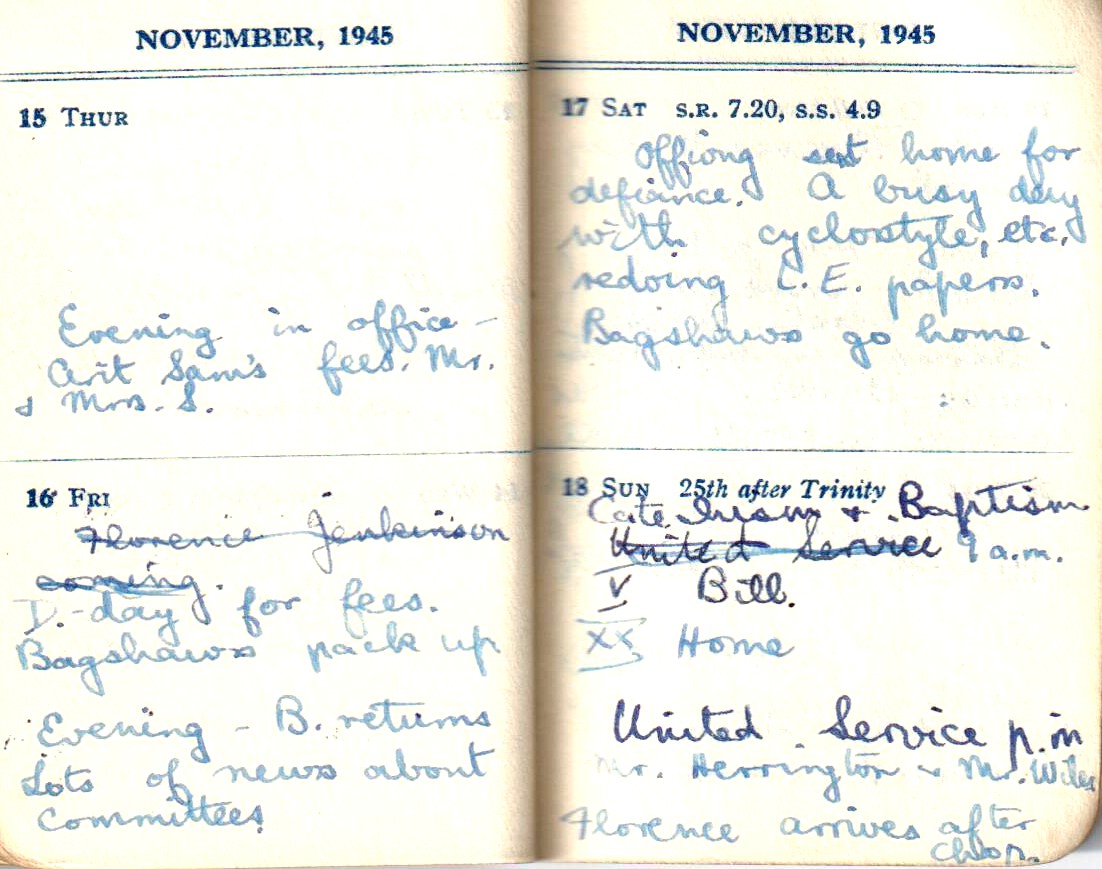 NOVEMBER, 1945
15 THUR
Evening in office –
Arit Sam's fees. Mr.
& Mrs. S.
16 FRI
Florence Jenkinson
coming.
D.-day for fees.
Bagshaws pack up
Evening – B. returns
Lots of news about
committees
NOVEMBER, 1945
17 SAT S.R. 7.20, S.S. 4.9
Offiong sent home for
defiance. A busy day
with cyclostyle, etc.
redoing C.E. papers.
Bagshaws go home.
18 SUN 25th after Trinity
& Baptism
United Service 9 a.m.
V Bill.
XX Home
United Service p.m
Mr. Herrington & Mr. Wiles
Florence arrives after
chop.